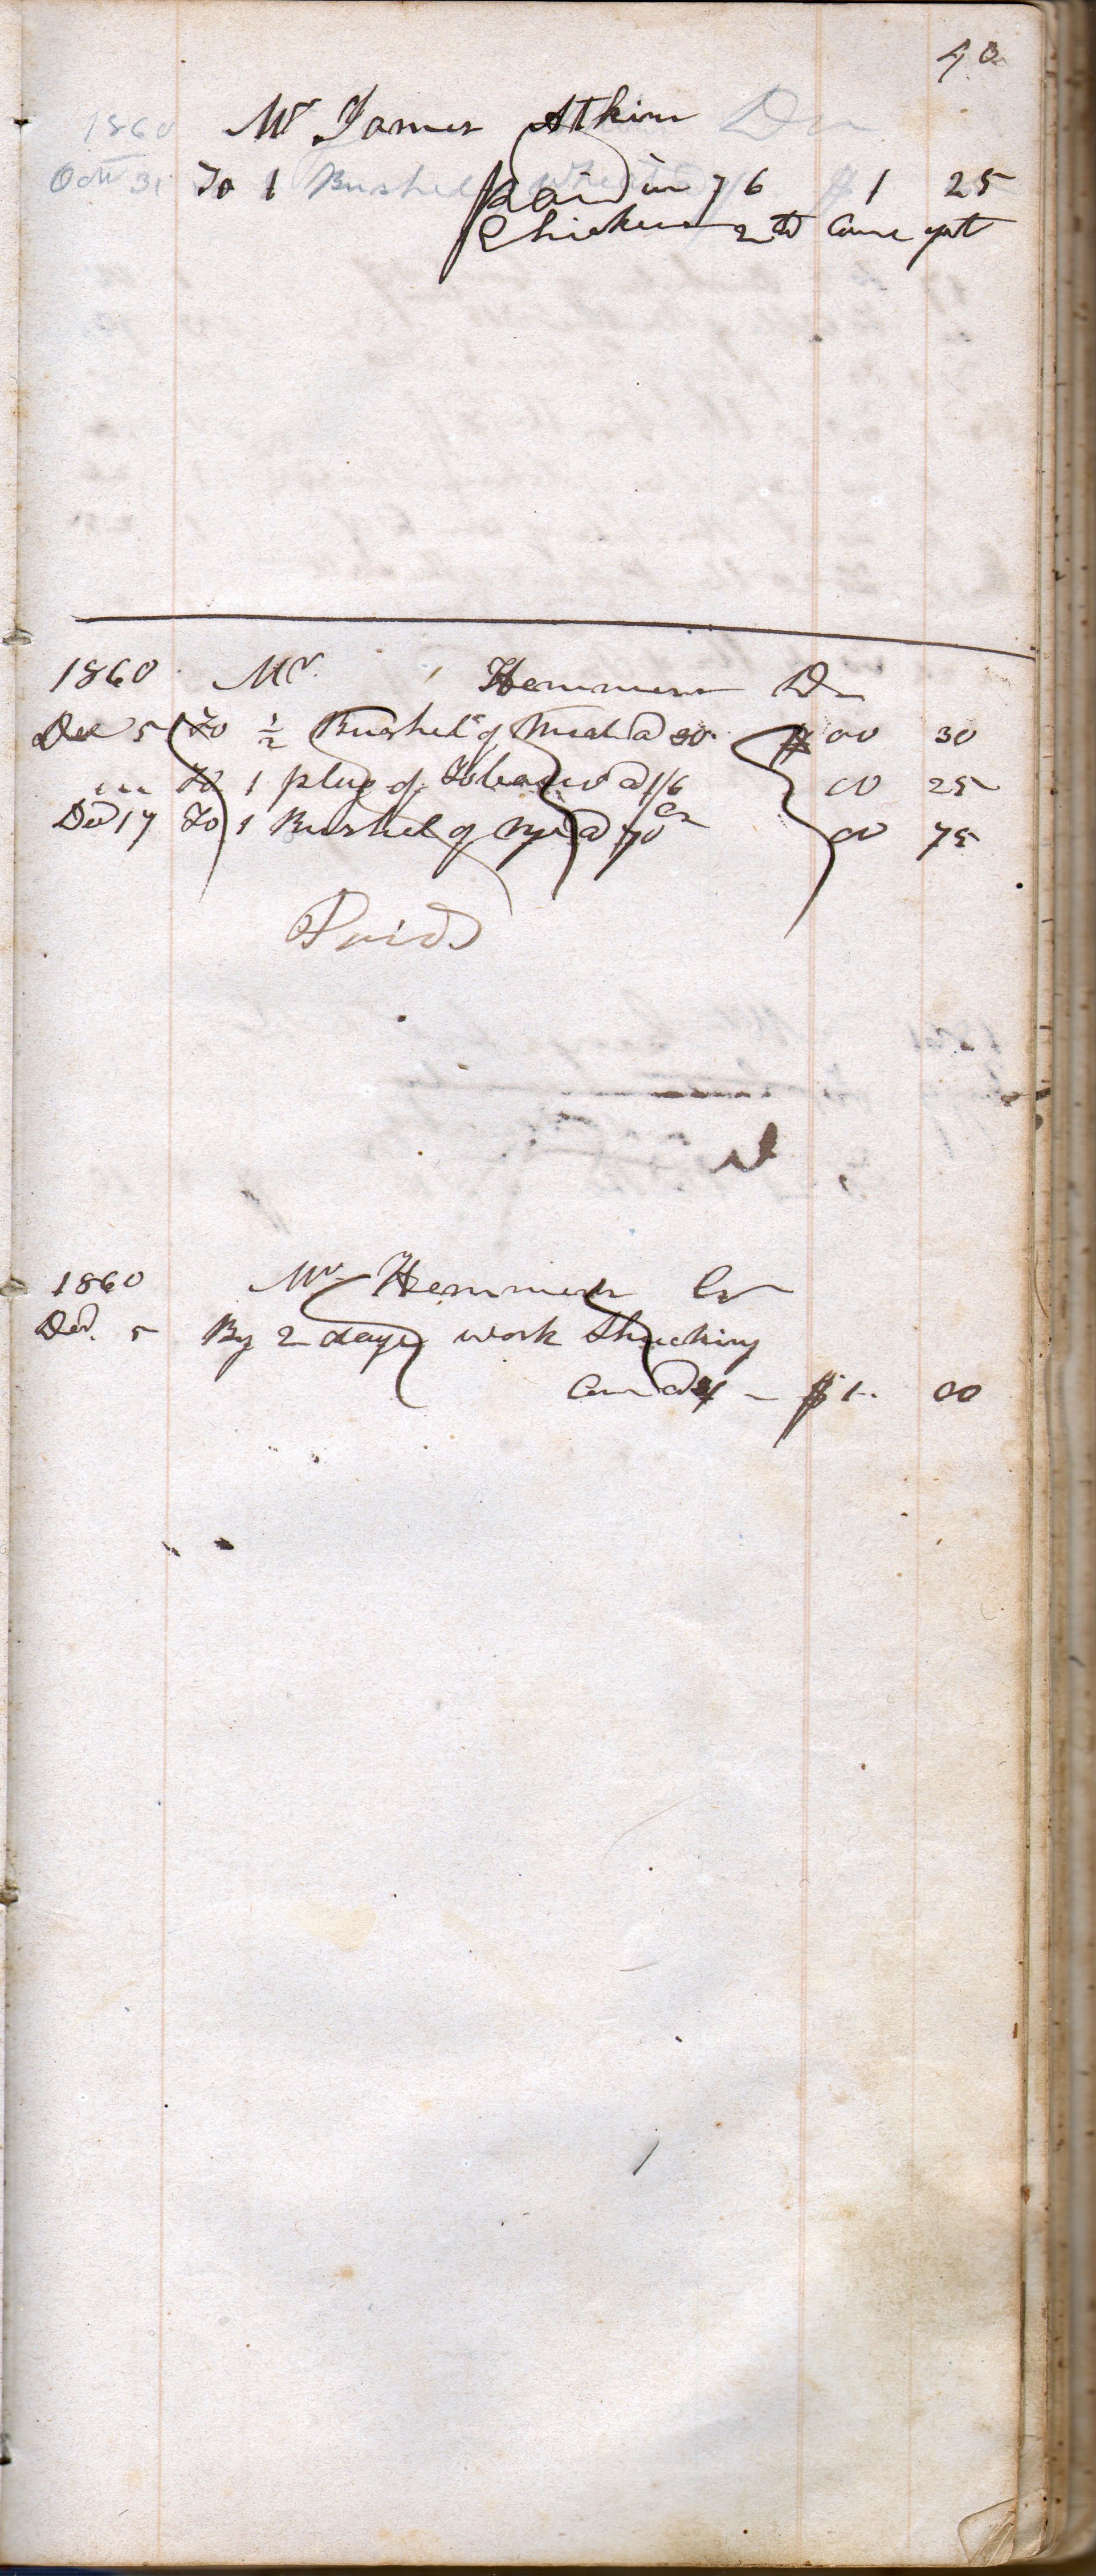 40
1860 Mr James Atkins Dr
Oct 31 To 1 Bushel Wheat 7/6 $ 1 25
Paid in
Chickens
1860 Mr. Hemmens Dr
Dec 5 To ½ Bushel of Meal @ 30 $ 00 30
" " To 1 plug of Tobacco @ 1/6 00 25
Dec 17 To 1 Bushel of rye @ 70 cs 00 75
Paid
1860 Mr Hemmens Cr
Dec. 5 By 2 days work Shucking
Corn @ $ 1 00